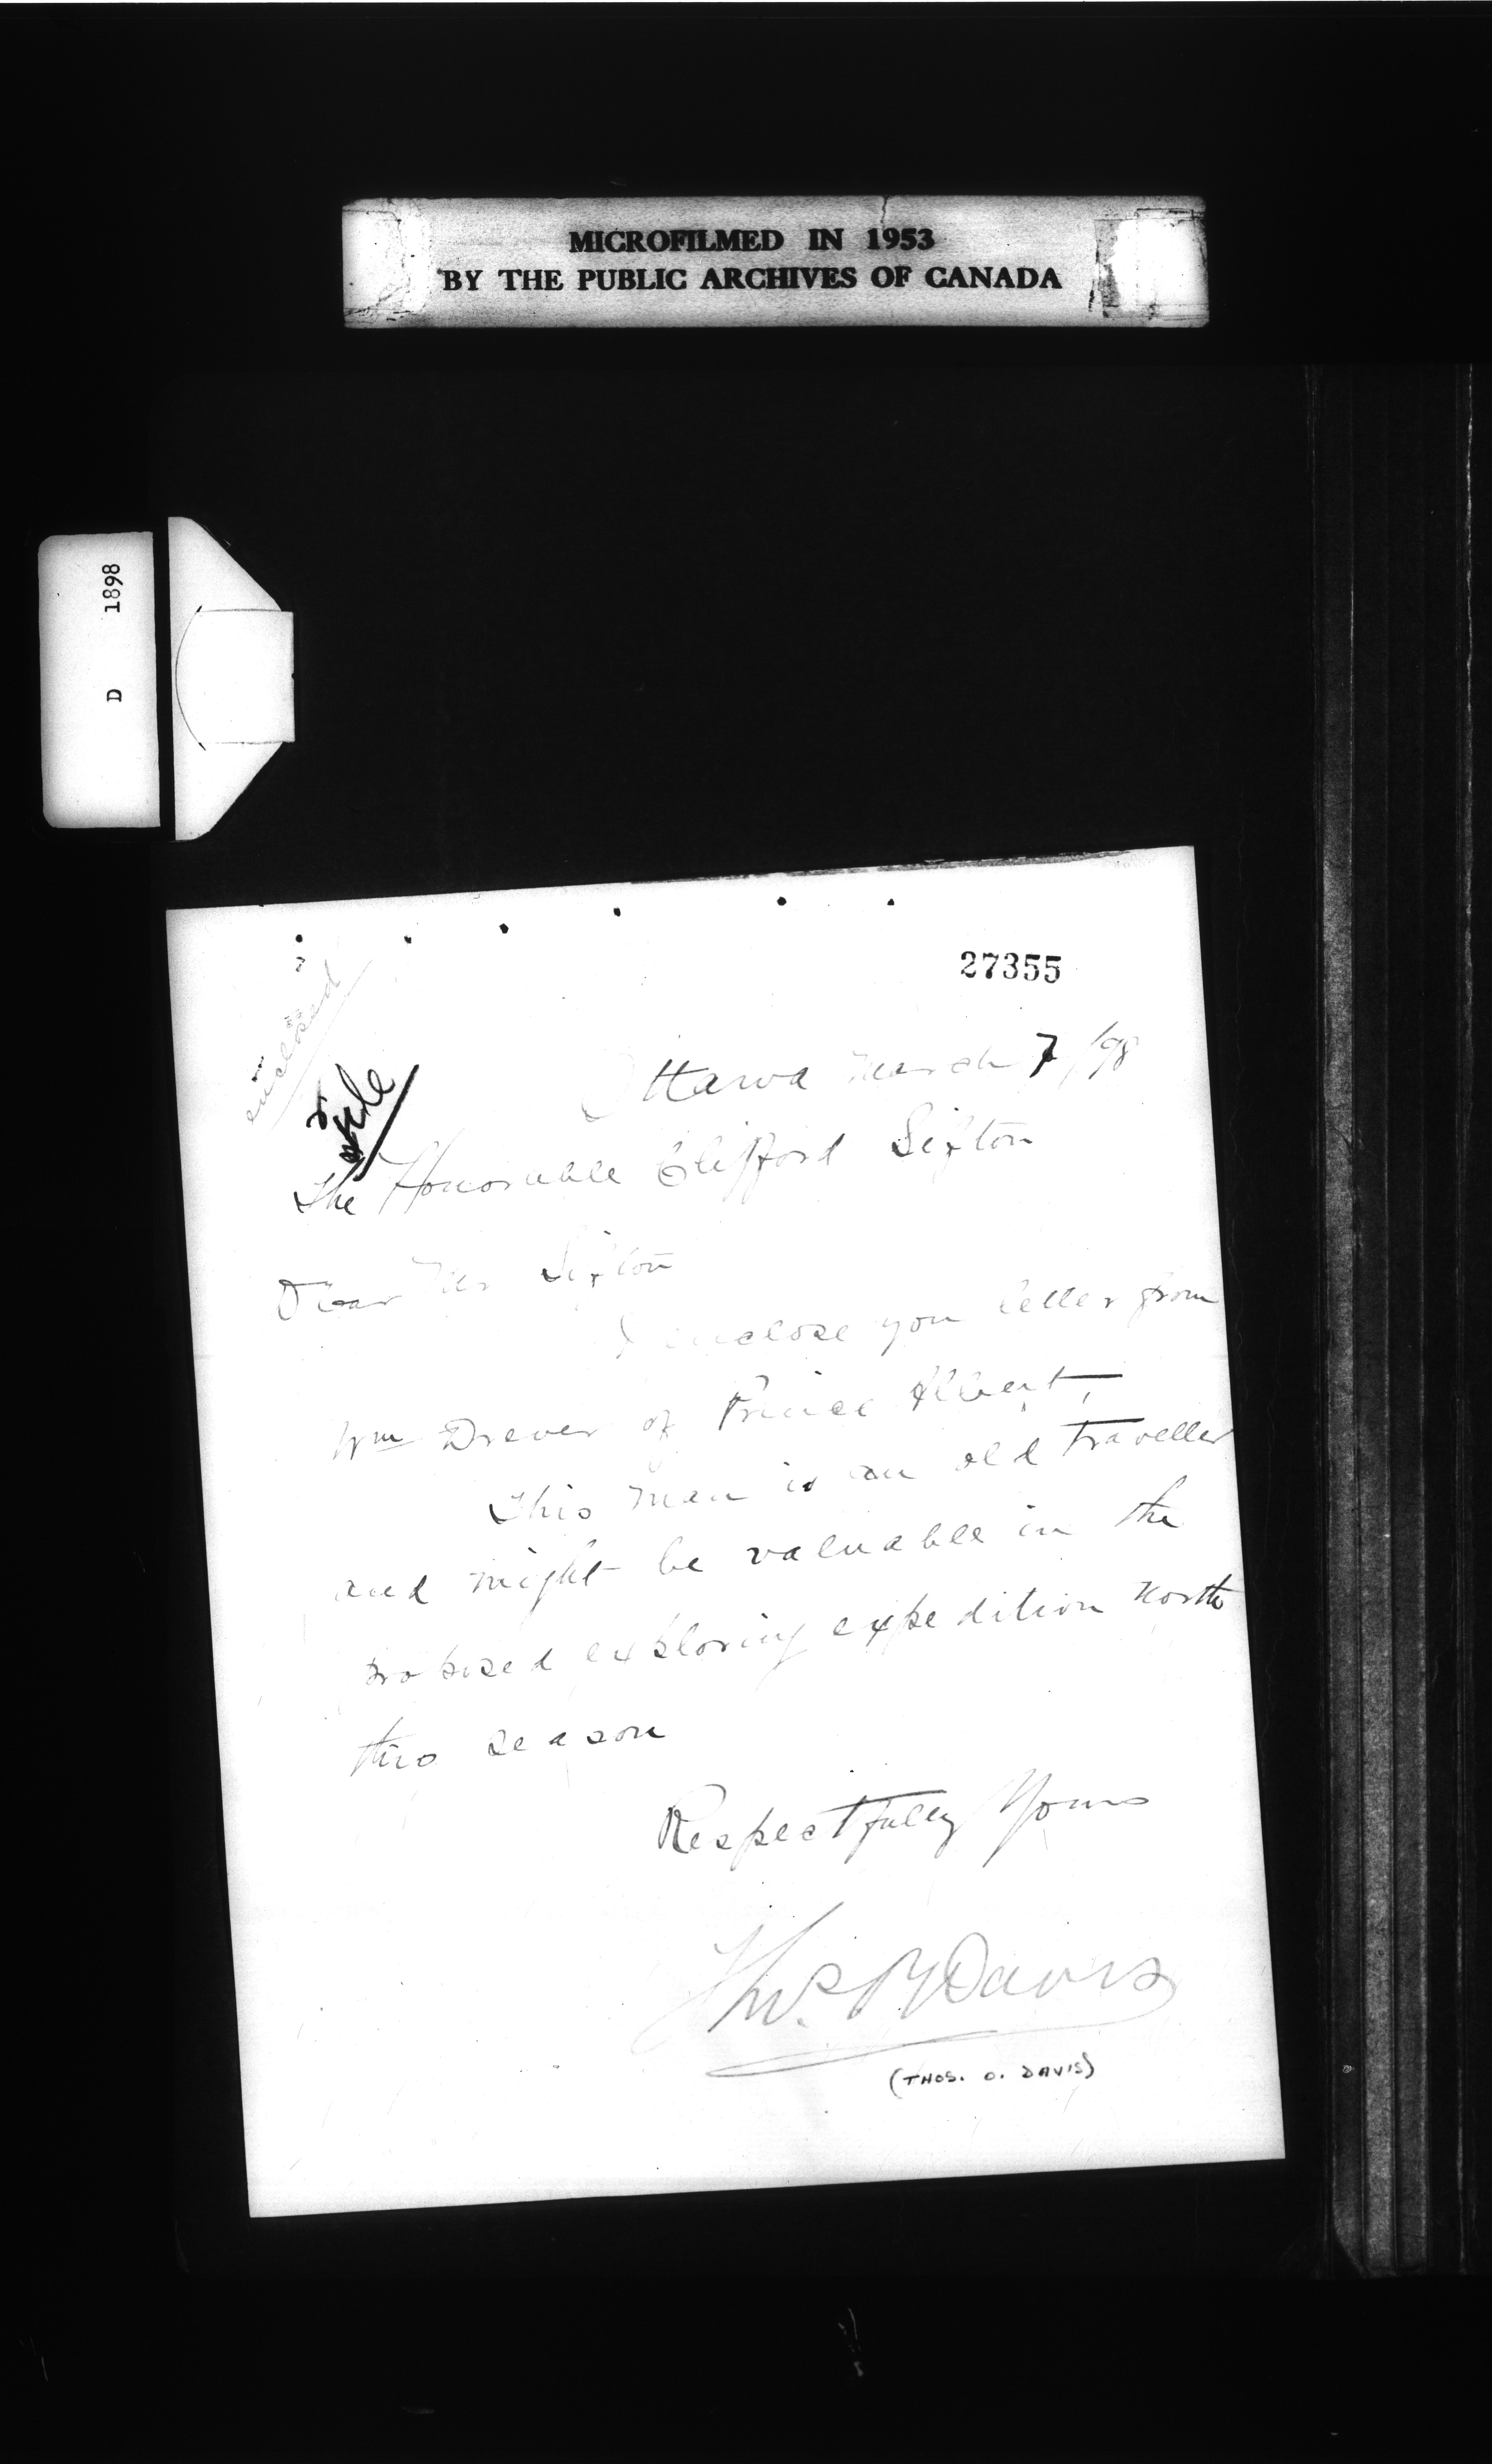 MICROFILMED IN 1953
BY THE PUBLIC ARCHIVES OF CANADA
D 1898
27355
enclosed
file
Ottawa March 7/98
The Honorable Clifford Sifton
Dear Mr Sifton
I enclose you letter from
Wm Drever of Prince Albert,
This man is an old traveller
and might be valuable in the
proposed exploring expedition north
this season
Respectfully Yours
Thos. O Davis
(THOS. O. DAVIS)